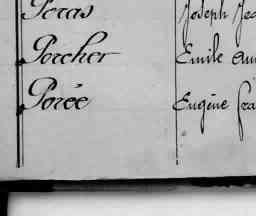 Peras Joseph
Porcher Emile
Porée Eugène